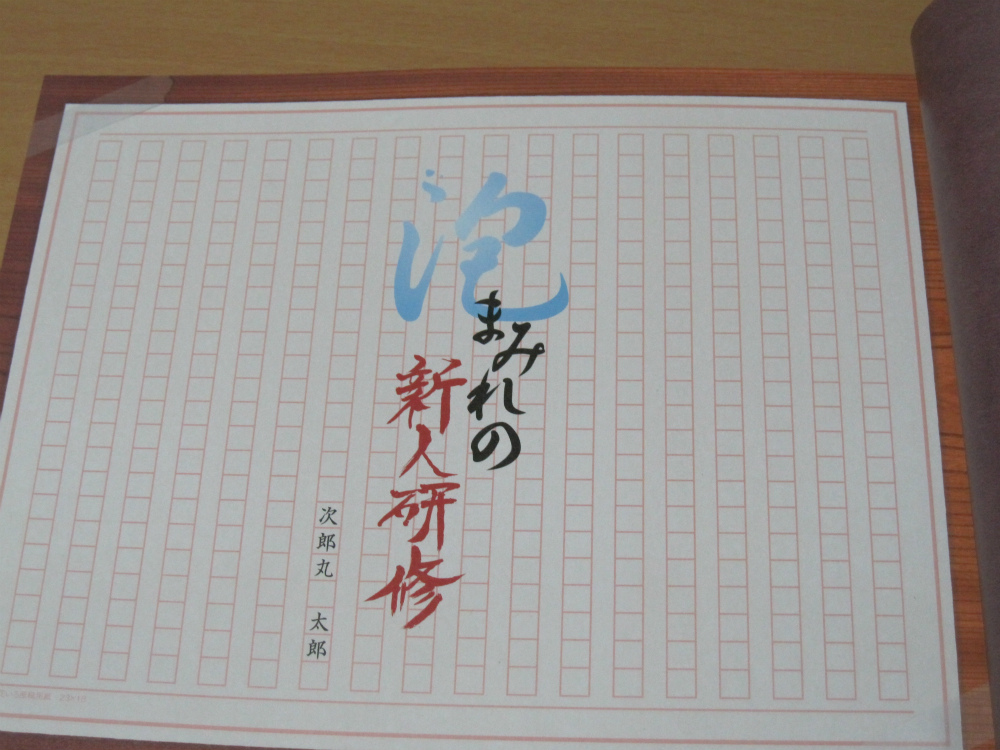 泡
まみれの
新人研修
次郎丸　太郎